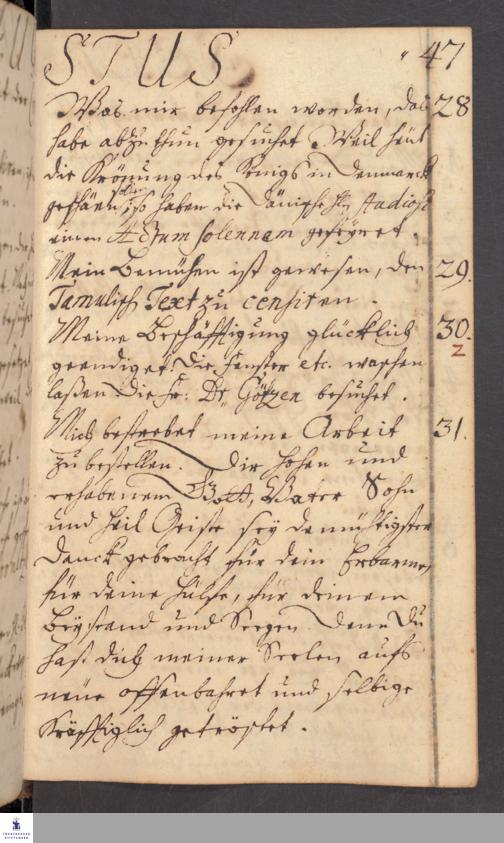 STUS. 47
Was mir befohlen worden, das 28
habe abzuthun gesuchet. Weil heut
die Krönung des Königs in Dennemarck
geschehen, so haben die Dänische Hn. Studiosi
einen Actum solennem gefeyret.
Mein Bemühen ist gewesen, den 29.
Tamulisch Text zu censiren.
Meine Beschäfftigung glücklich 30.
geendiget. Die Fenster etc. waschen 2
laßen. Die Fr: Dr. Götzen besuchet.
Mich bestrebet meine Arbeit 31.
zu bestellen. Dir hohen und
erhabenem Gott, Vater Sohn
und Heil Geiste sey demüthigster
Danck gebracht für dein Erbarmen,
für deine Hülfe, für deinem
Beystand und Seegen. Denn Du
hast dich meiner Seelen aufs
neue offenbahret und selbige
kräfftiglich getröstet.
FRANCKESCHE
STIFTUNGEN